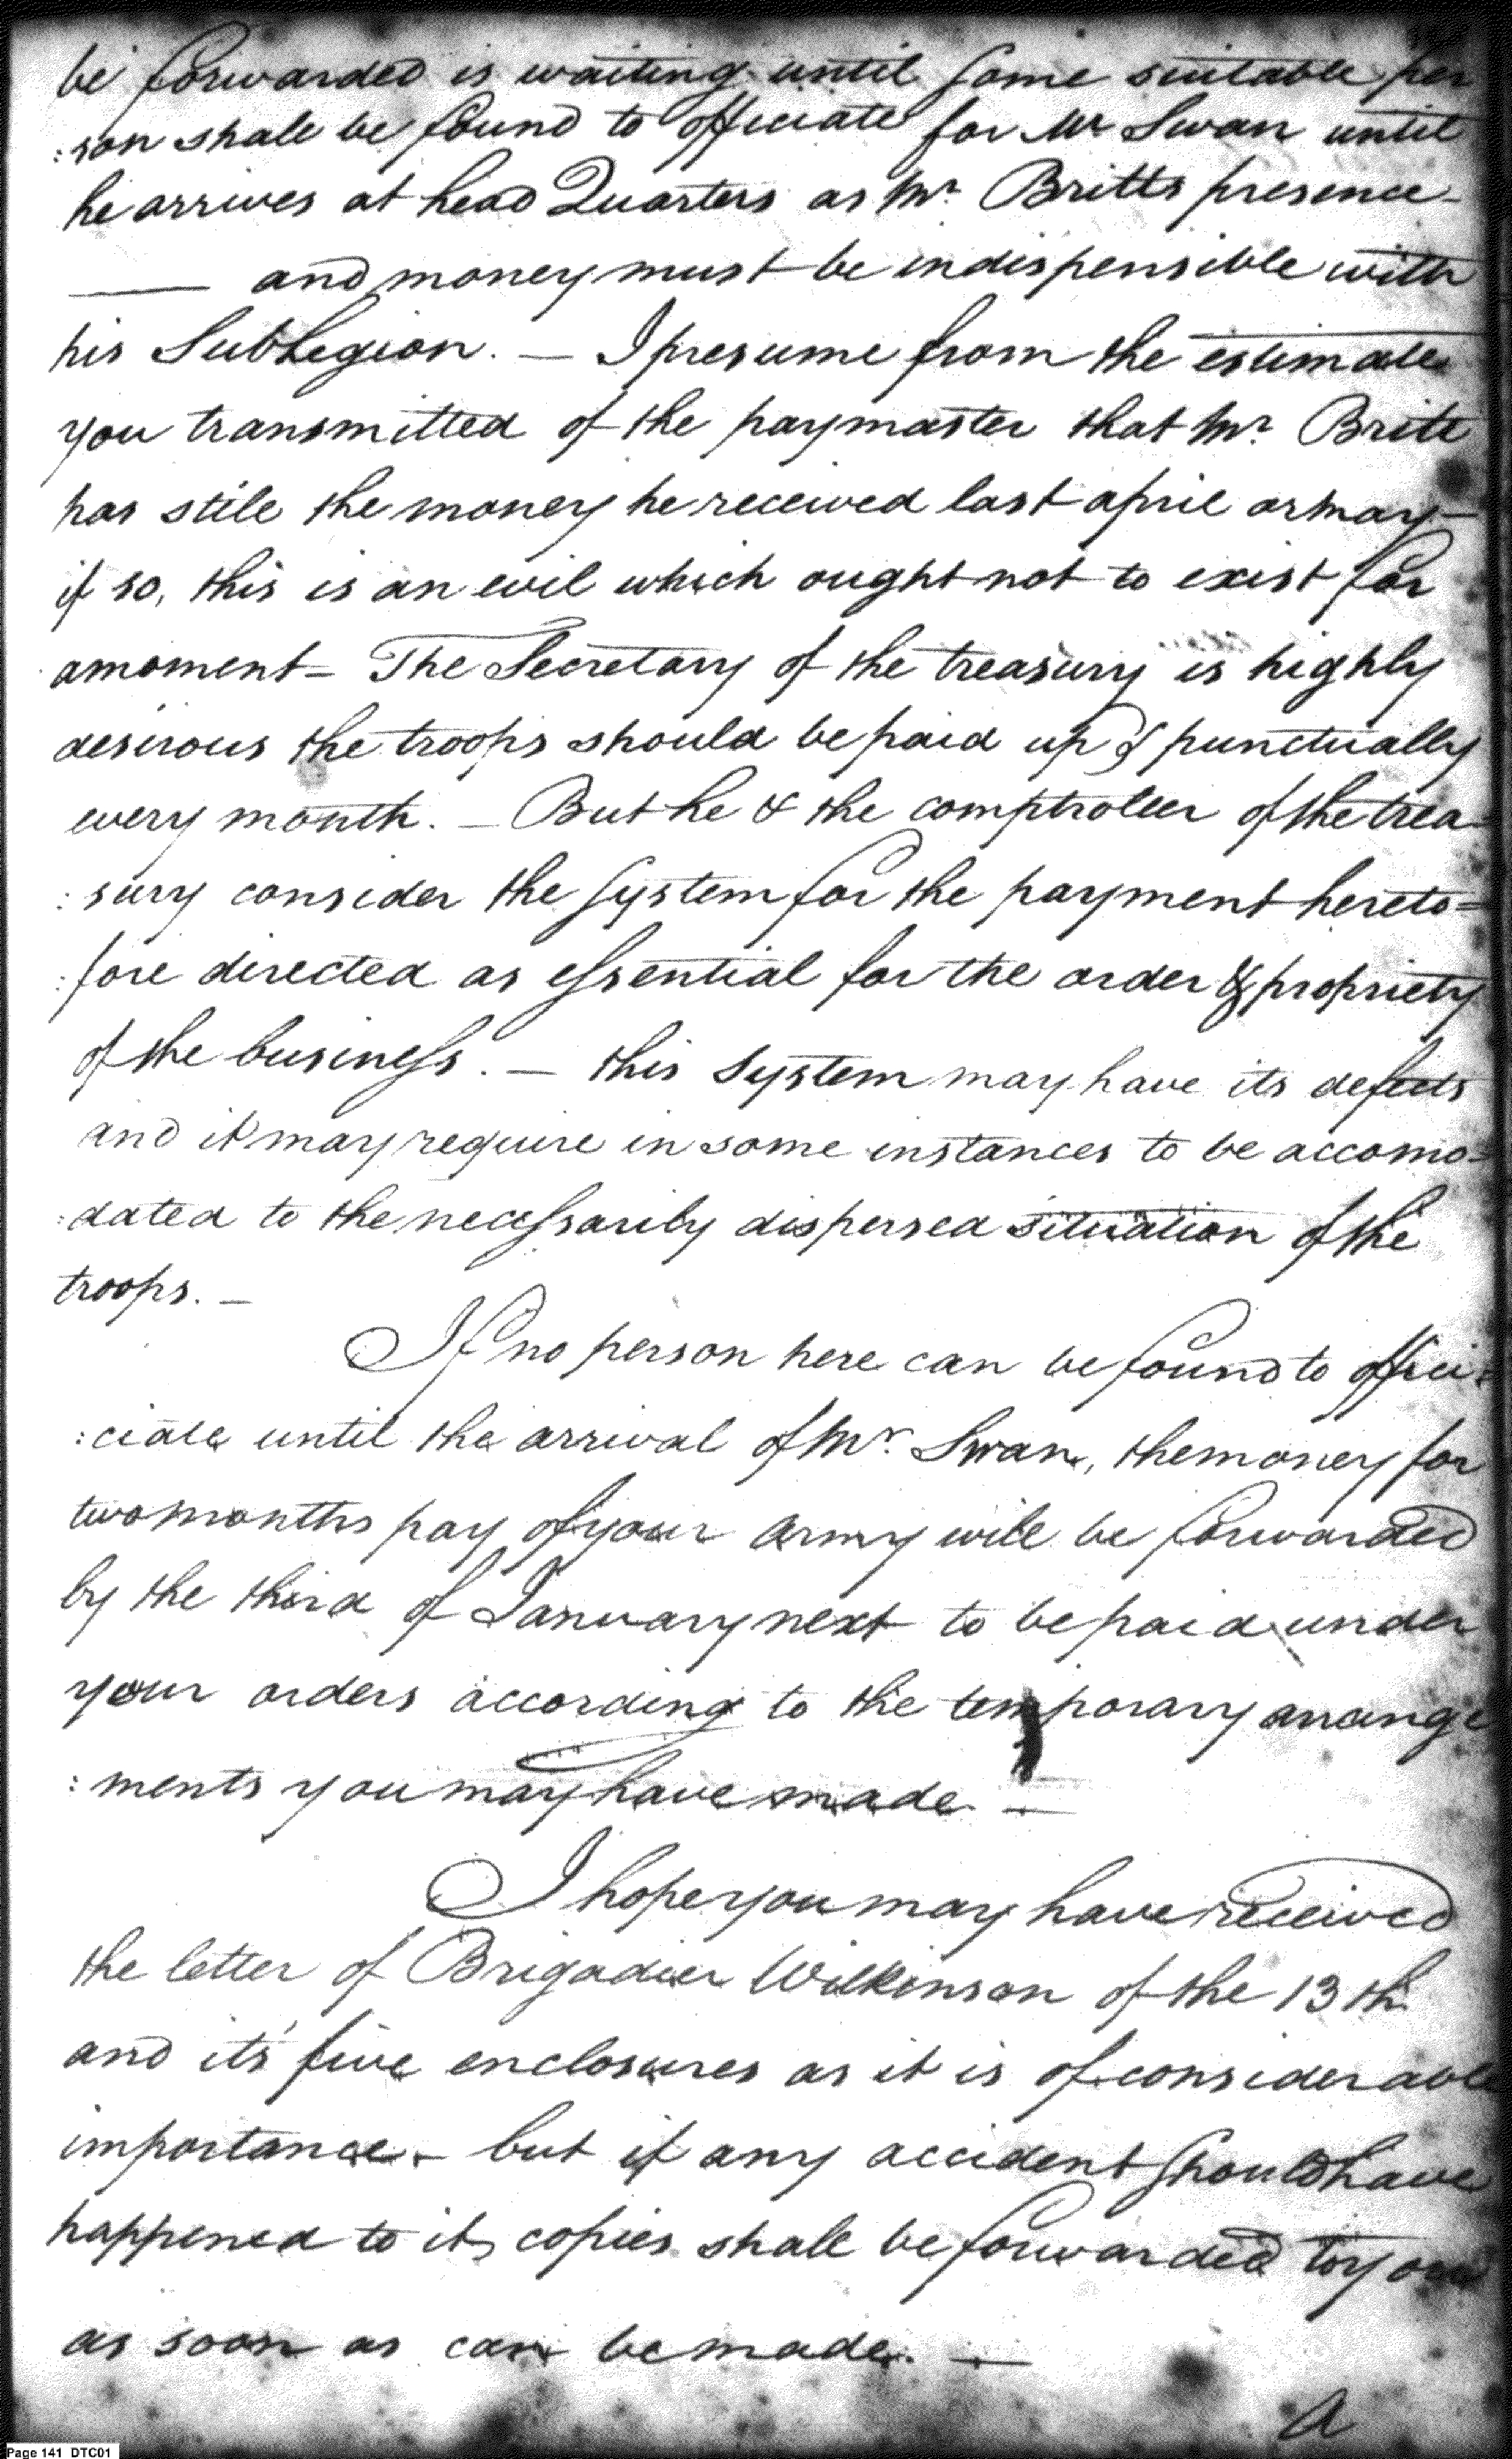 be forwarded is waiting until some suitable per
:son shall be found to officiate for Mr Swan until
he arrives at head Quarters as Mr. Britts presence
—— and money must be indispensible with
his SubLegion. — I presume from the estimate
you transmitted of the paymaster that Mr. Britt
has still the money he received last april or may —
if so, this is an evil which ought not to exist for
a moment — The Secretary of the treasury is highly
desirous the troops should be paid up & punctually
every month. — But he & the comptroller of the trea=
:sury consider the system for the payment hereto=
:fore directed as essential for the order & propriety
of the business. — this System may have its defects
and it may require in some instances to be accomo=
:dated to the necessarily dispersed situation of the
troops. —
If no person here can be found to offici=
:ciate until the arrival of Mr. Swan, the money for
two months pay of your army will be forwarded
by the third of January next to be paid under
your orders according to the temporary arrange
:ments you may have made —
I hope you may have received
the letter of Brigadier Wilkinson of the 13th
and it's five enclosures as it is of considerable
importance — but if any accident should have
happened to it, copies shall be forwarded to you
as soon as can be made. —
a
Page 141 DTC01